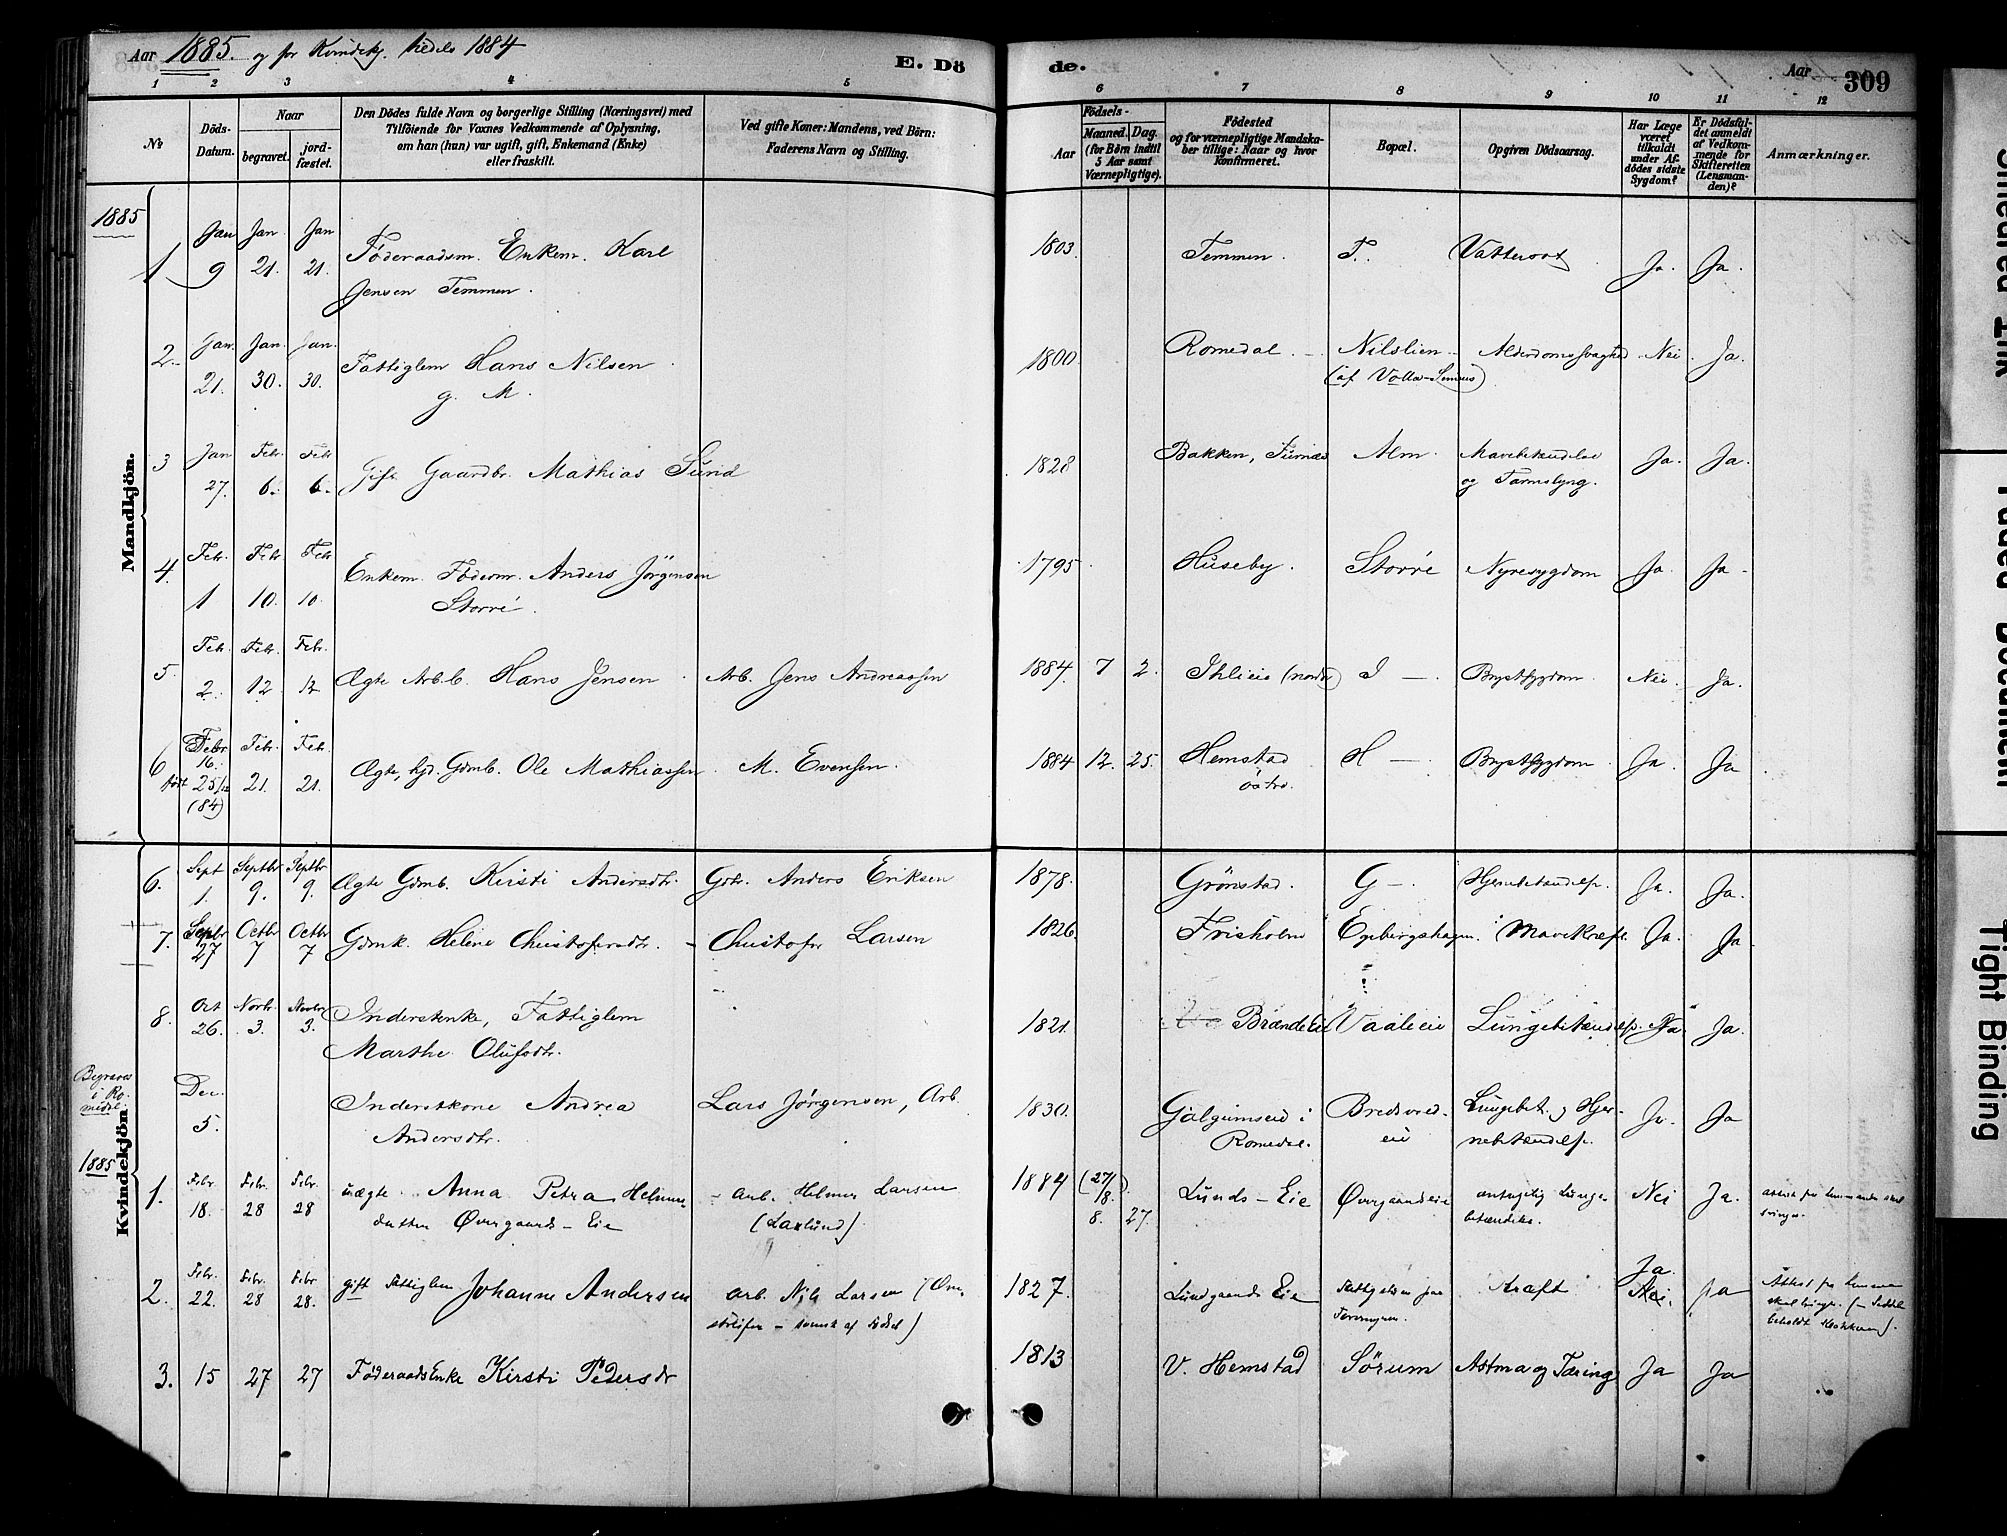 Aar 1885. og for Kvindekj. tildels 1884
E. Döde.
Aar 309
1 2 3 4 5 6 7 8 9 10 11 12
No
Döds-Datum.
Naar
begravet.
jordfæstet.
Den Dödes fulde Navn og borgerlige Stilling (Næringsvei) med
Tilföiende for Voxnes Vedkommende af Oplysning,
om han (hun) var ugift, gift, Enkemand (Enke)
eller fraskilt.
Ved gifte Koner: Mandens, ved Börn:
Faderens Navn og Stilling.
Födsels-
Aar
Maaned. Dag.
(for Börn indtil
5 Aar samt
Værnepligtige).
Födested
og for værnepligtige Mandska-
ber tillige: Naar og hvor
Konfirmeret.
Bopæl.
Opgiven Dödsaarsag.
Har Læge
været
tilkaldt
under Af-
dödes sidste
Sygdom?
Er Dödsfal-
det anmeldt
af Vedkom-
mende for
Skifteretten
(Lensman-
den)?
Anmærkninger.
Mandkjön.
1885
1 Jan 9 Jan. 21. Jan 21. Føderaadsm. Enkem. Karl
Jensen Temmen. 1803 Temmen. T. Vattersot Ja. Ja.
2. Jan. 21. Jan. 30. Jan. 30. Fattiglem Hans Nilsen
g. M. 1800 Romedal. Nilslien Alderdomssvaghed Nei. Ja.
3 Jan 27. Febr. 6. Febr 6. Gift Gaardbr. Mathias Sund 1828 Bakken, Furnæs Alm. Mavebetændelse
og Tarmslyng. Ja. Ja.
4. Febr. 1 Febr 10. Febr 10. Enkem. Föderm. Anders Jörgensen
Storré. 1795 Huseby. Storré Nyresygdom Ja. Ja.
5. Febr. 2. Febr. 12. Febr. 12 Ægte Arb.b. Hans Jensen Arb. Jens Andreassen 1884. 7 2. Ihlseie (nordr) I — Brystsygdom. Nei. Ja.
6 født Febr 16. 25/12 (84) Febr. 21. Febr. 21. Ægte, hjd. Gdmb. Ole Mathiassen. M. Evensen. 1884 12. 25. Hemstad
östre. H — Brystsygdom Ja. Ja
Kvindekjön
6. Sept 1. Septbr 9. Septbr 9. Ægte Gdmb. Kirsti Andersdtr. Gdbr. Anders Eriksen 1878. Grönstad. G —. Hjernebetændelse. Ja. Ja.
7. Septbr 27 Octbr 7 Octbr 7 Gdmk. Helene Christofersdtr. – Christofer Larsen 1826. Frisholm Egebergshagen. Mavekræft. Ja. Ja
8. Oct 26. Novbr. 3. Novbr 3. Inderstenke, Fattiglem
Marthe Olufsdtr. 1821. Brænde Eie Vaaleeie Lungebetændelse. Ja. Ja.
Begraves
i Ro-
medal. Dec. 5. Inderstkone Andrea
Andersdtr. Lars Jørgensen, Arb. 1830. Gjölgumseie i
Romedal. Bredsved-
eie Lungebet. og Hjer-
nebetændelse. Ja. Ja
1885
1. Febr. 18. Febr. 28 Febr. 28 uægte Anna Petra Helmers
datter Øvergaards-Eie – Arb. Helmer Larsen
(Laxlund) 1884 (27/8) 8. 27. Lunds-Eie Øvergaardseie antagelig Lunge-
betændelse. Nei Ja.
2. Febr. 22. Febr. 28 Febr 28. gift Fattiglem Johanne Andersen Arb. Nils Larsen 1827. Lundgaards Eie Kræft Ja. Nei. Ja
3. 15 27 27 FøderaadsEnke Kirsti Pedersdr 1813 V. Hemstad Sörum Astma og Tæring Ja Ja
Smeared Ink
Faded Document
Tight Binding